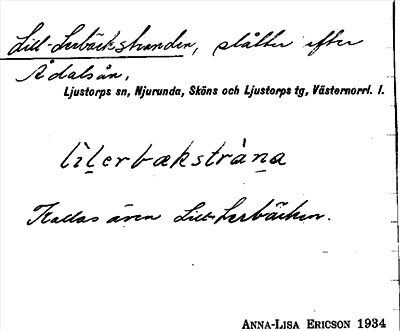 Lill-Lerbäckstranden, slåtter efter
Ådalsån.
Ljustorps sn, Njurunda, Sköns och Ljustorps tg, Västernorrl. l.
lìlerbækstràna
Kallas även Lill-Lerbäcken.
ANNA-LISA ERICSON 1934